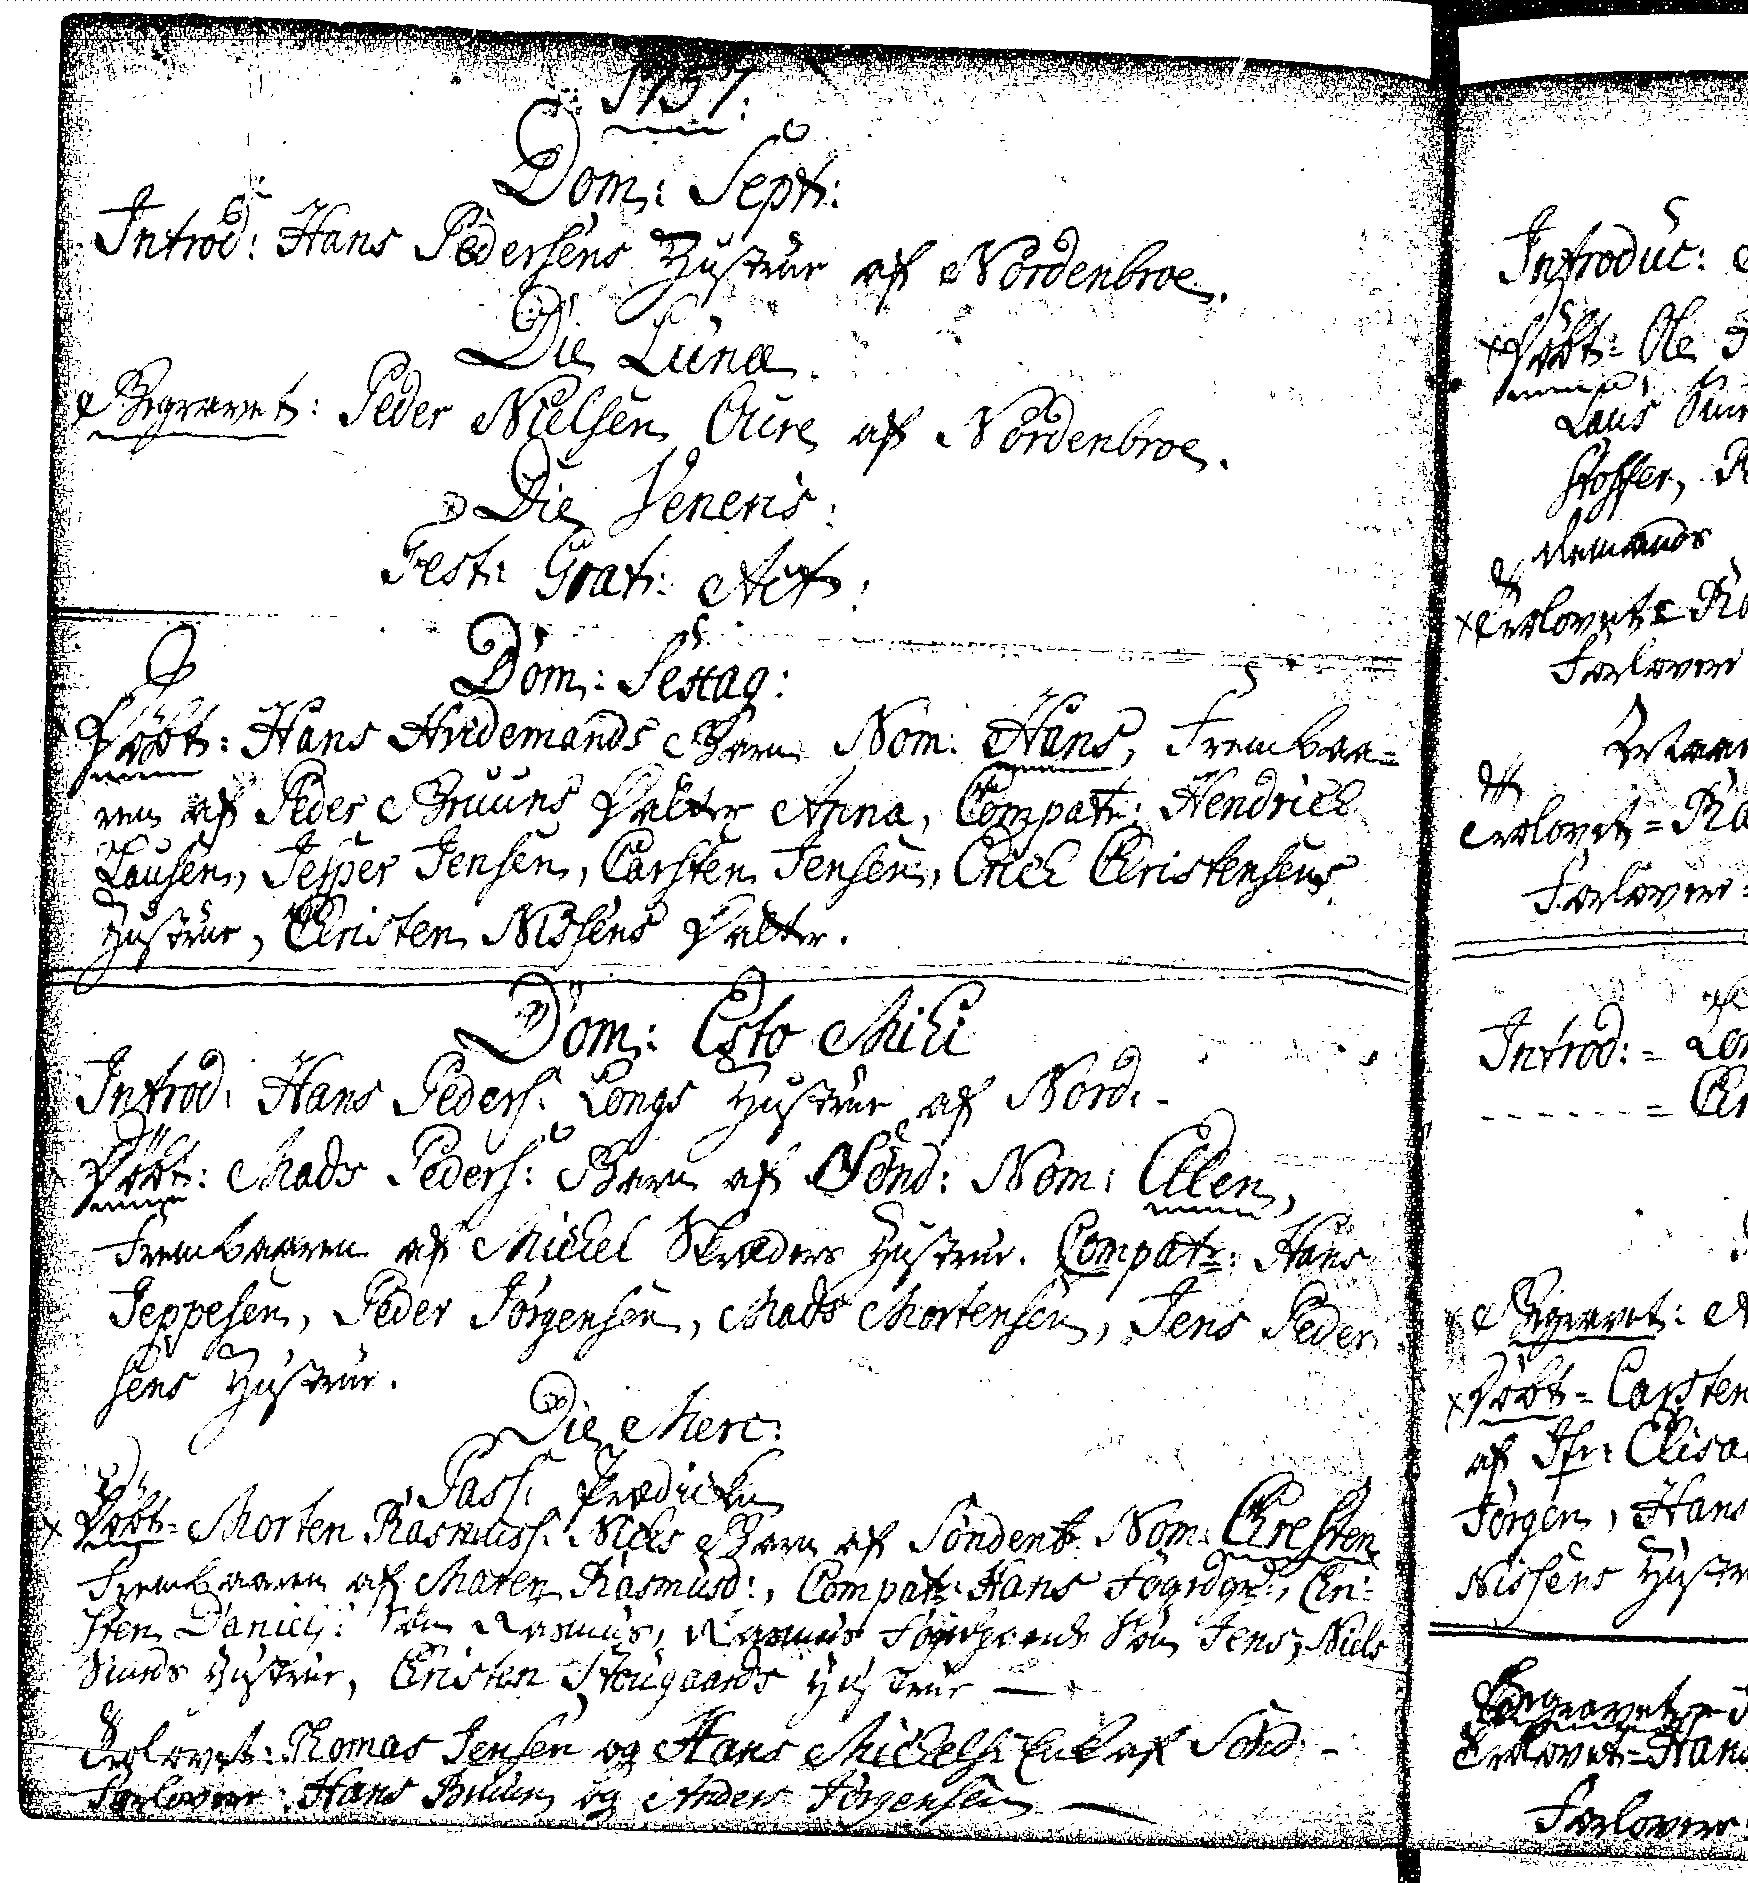 1757.
Dom: Sept:
Introd: Hans Pedersens Hustrue af Nordenbroe.
Die Lunæ.
Begravet: Peder Nielsen Oure af Nordenbroe.
Die Veneris:
Fest: Grat: Act:
Dom: Sexag:
Döbt: Hans Hvidemands Barn Nom: Hans, Frembaa-
ren af Peder Bruuns Datter Anna, Compatr: Hendrich
Lausen, Jesper Jensen, Carsten Jensen, Erich Christensens
Hustrue, Christen Nissens Datter.
Dom: Esto Mihi
Introd: Hans Peders: Longs Hustrue af Nord: -
Döbt: Mads Peders: Barn af Sönd: Nom: Ellen,
Frembaaren af Michel Skræders Hustrue. Compatr: Hans
Jeppesen, Peder Jörgensen, Mads Mortensen, Jens Peder
sens Hustrue.
Die Merc:
Pass: Prædicken
Döbt= Morten Rasmuss: Barn af Söndenb: Nom: Chresten
Frembaaren af Maren Rasmusd:, Compatr: Hans Chri-
sten Daniels: Sön Rasmus, Rasmus Sön Jens, Niels
Hustrue, Christen Skougaards Hustrue —
Trolovet: Thomas Jensen og Hans Michels: Enke af Sönd: -
Forlovere: Hans Bruun og Anders Jörgensen —
Introduc:
Döbt= Ole
Laus
stoffer,
Trolovet=
Forlovere
Trolovet=
Forlovere:
Introd:=
Begravet:
Döbt= Carsten
af Jfr: Elisa
Jörgen, Hans
Nissens Hustr
Begravet=
Trolovet= Hans
Forlovere: